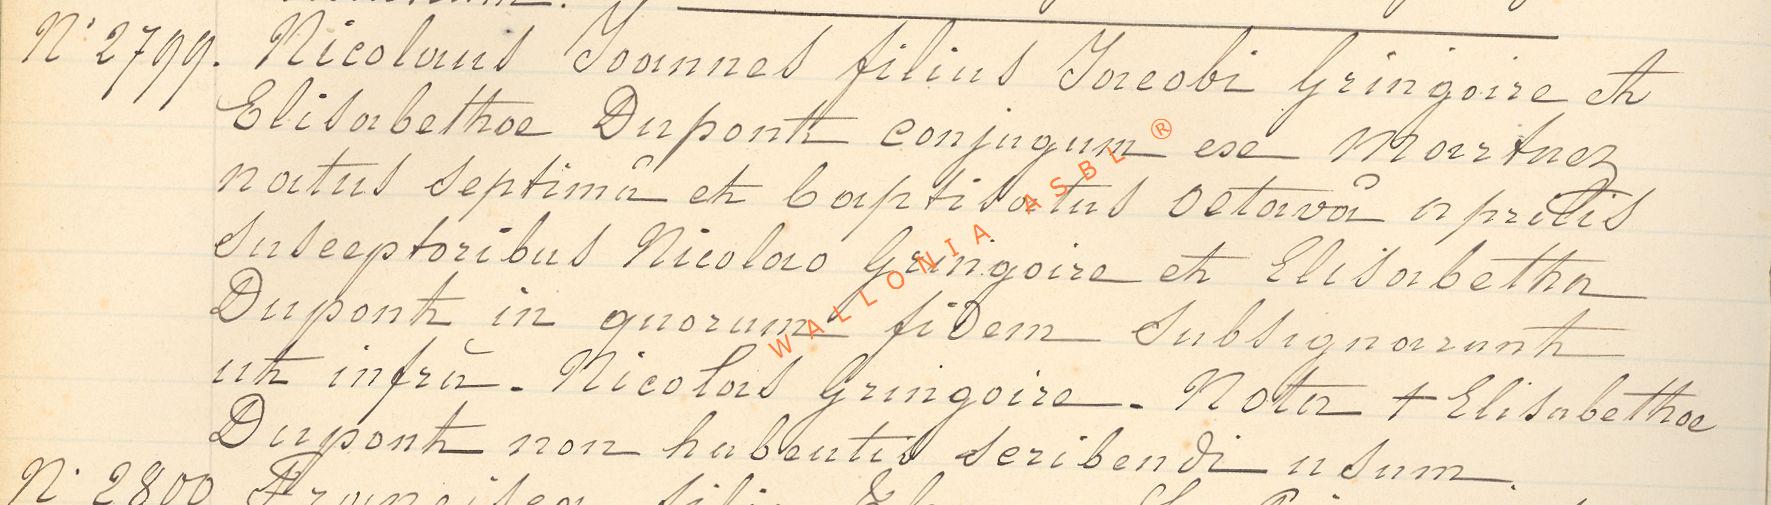 N° 2799. Nicolaus Joannes filius Jacobi Gringoire et
Elisabethae Dupont conjugum ex Martuez
natus septimâ et baptisatus octavâ aprilis
susceptoribus Nicolao Gringoire et Elisabetha
Dupont in quorum fidem subsignarunt
ut infrà. Nicolas Gringoire. Nota + Elisabethae
Dupont non habentis scribendi usum.
N° 2800 Francisca filia
WALLONIA ASBL ®